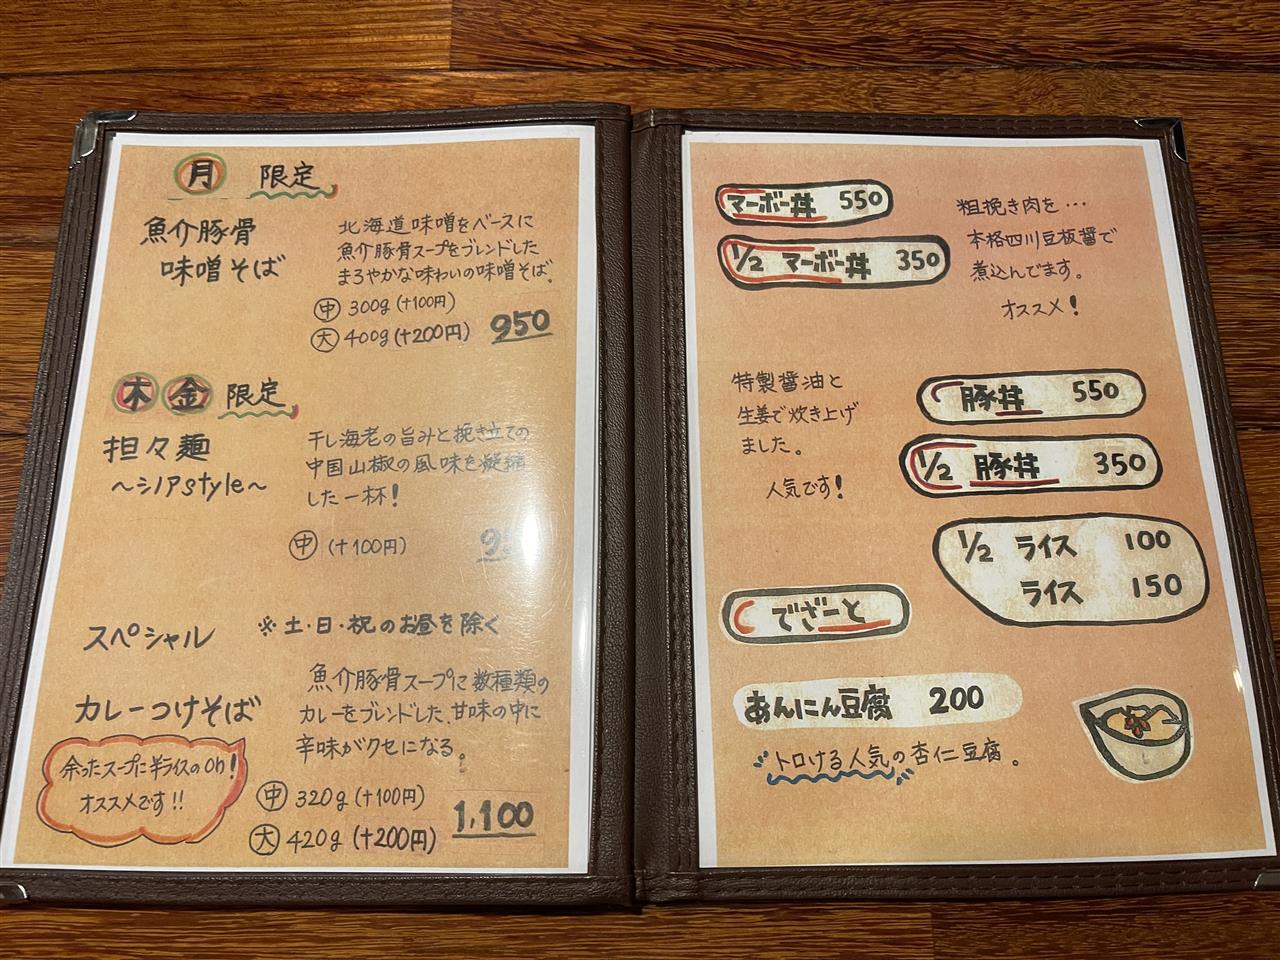 月 限定
魚介豚骨
味噌そば
北海道味噌をベースに
魚介豚骨スープをブレンドした
まろやかな味わいの味噌そば。
中 300g (+100円)
大 400g (+200円) 950
木 金 限定
担々麺
～シノアstyle～
干し海老の旨みと挽き立ての
中国山椒の風味を凝縮
した一杯!
中 (+100円)
スペシャル ※土・日・祝のお昼を除く
カレーつけそば
魚介豚骨スープに数種類の
カレーをブレンドした、甘味の中に
辛味がクセになる。
余ったスープに半ライスのOh!
オススメです!!
中 320g (+100円)
大 420g (+200円) 1,100
マーボー丼 550
1/2 マーボー丼 350
粗挽き肉を…
本格四川豆板醤で
煮込んでます。
オススメ!
特製醤油と
生姜で炊き上げ
ました。
人気です!
豚丼 550
1/2 豚丼 350
1/2 ライス 100
ライス 150
でざーと
あんにん豆腐 200
トロける人気の杏仁豆腐。